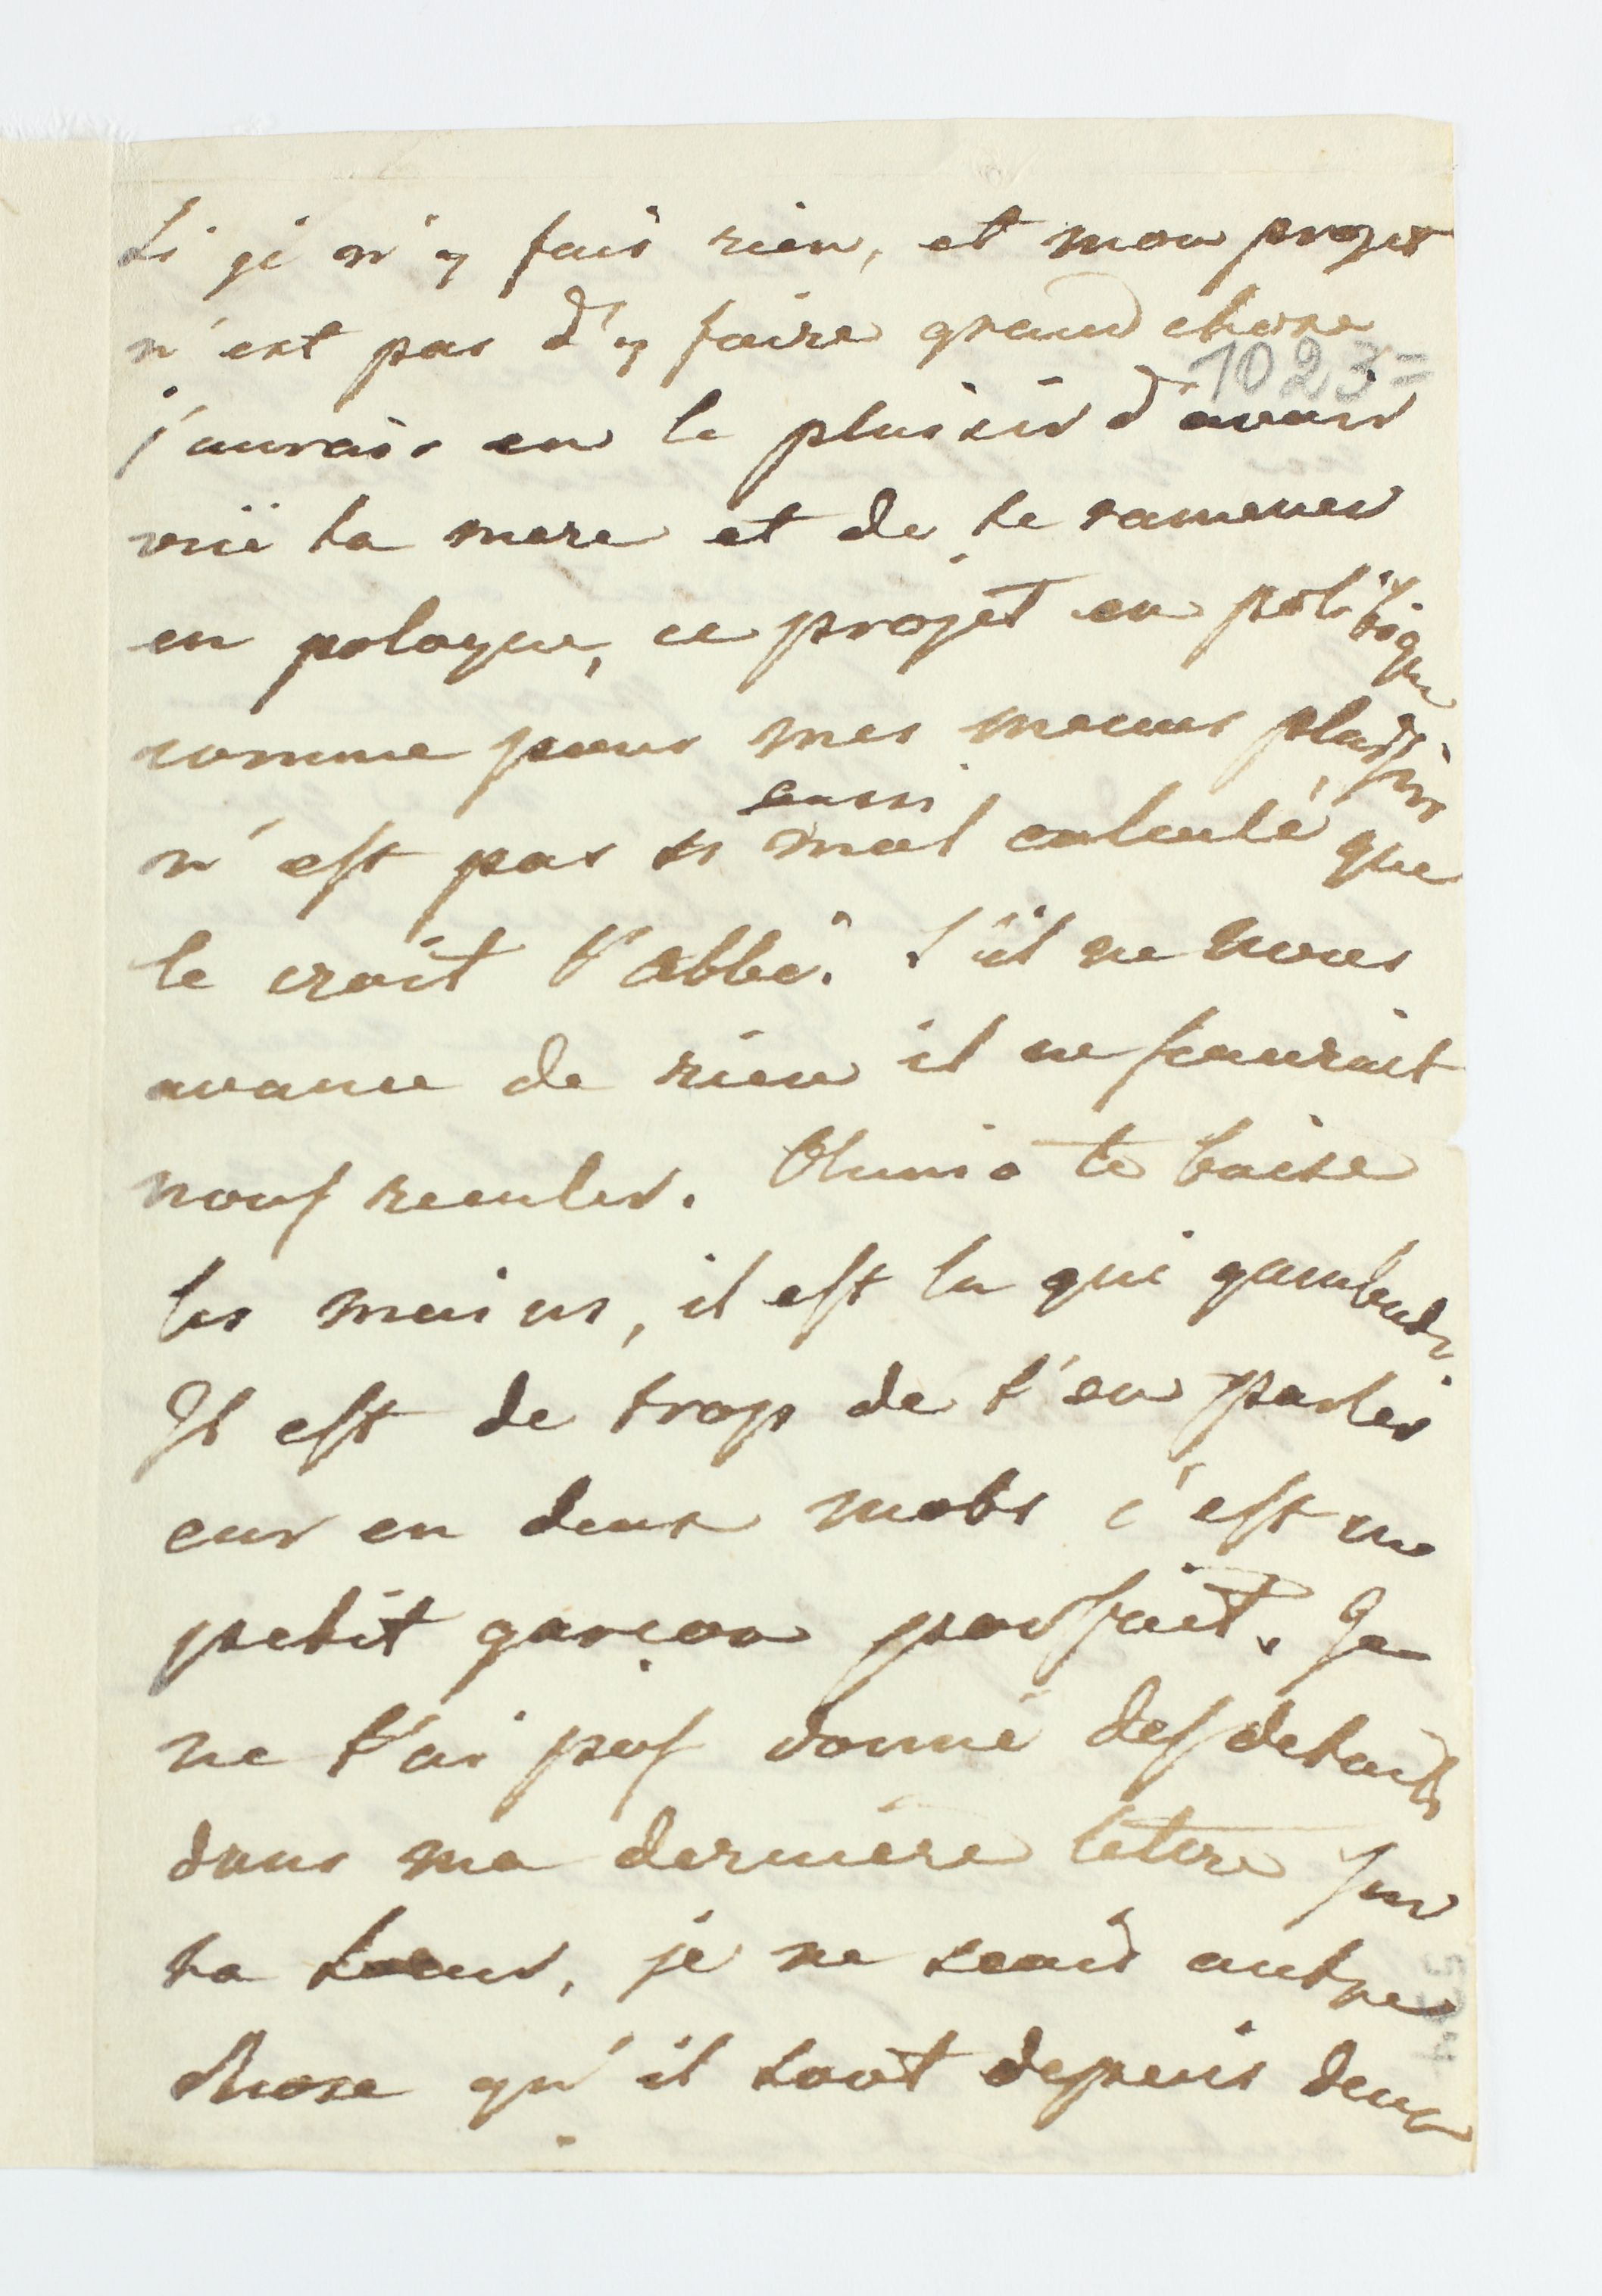 Si je n'y fais rien, et mon projet
n'est pas d'y faire grand chose
1023=
j'aurais eu le plaisir d'avoir
vüe ta mere et de te ramener
en pologne, ce projet en politique
comme pour mes menus plaisirs
aussi
n'est pas si mal calculé que
le croit l'abbé. S'il ne nous
avance de rien il ne scauroit
nous reculer. te baise
les mains, il est la qui gambade
Il est de trop de t'en parler
car en deux mots c'est un
petit garçon parfait. Je
ne t'ai pas donné des details
dans ma derniere lettre sur
ta soeur, je ne scais autre
chose qu'il sont depuis deux